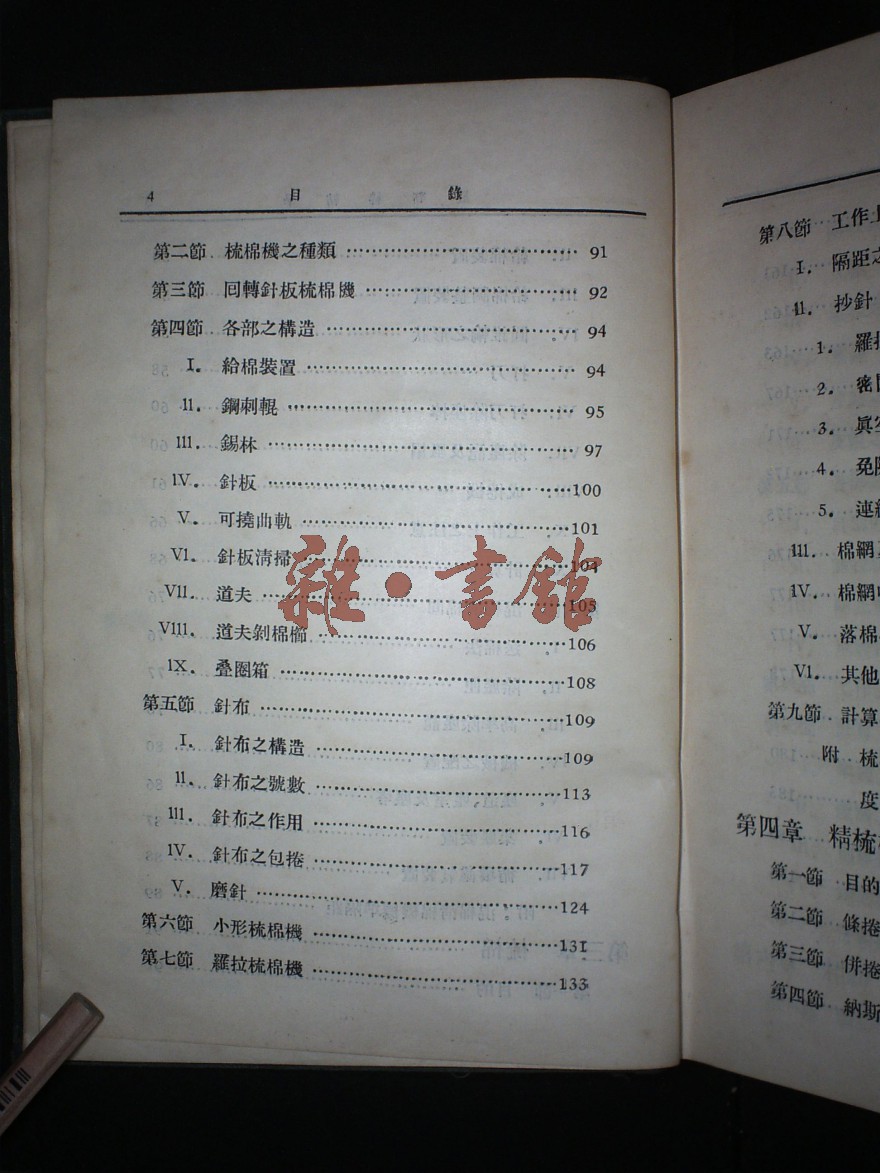 4 目錄
第二節 梳棉機之種類 91
第三節 囘轉針板梳棉機 92
第四節 各部之構造 94
I. 給棉裝置 94
II. 鋼刺輥 95
III. 錫林 97
IV. 針板 100
V. 可撓曲軌 101
VI. 針板淸掃 104
VII. 道夫 105
VIII. 道夫剝棉櫛 106
IX. 叠圈箱 108
第五節 針布 109
I. 針布之構造 109
II. 針布之號數 113
III. 針布之作用 116
IV. 針布之包捲 117
V. 磨針 124
第六節 小形梳棉機 131
第七節 羅拉梳棉機 133
雜·書館
第八節 工作
I. 隔距之
II. 抄針
1. 羅
2. 密
3. 眞空
4. 免
5. 連
III. 棉網
IV. 棉網
V. 落棉
VI. 其他
第九節 計算
附 梳
度
第四章 精梳
第一節 目的
第二節 條捲
第三節 併捲
第四節 納斯